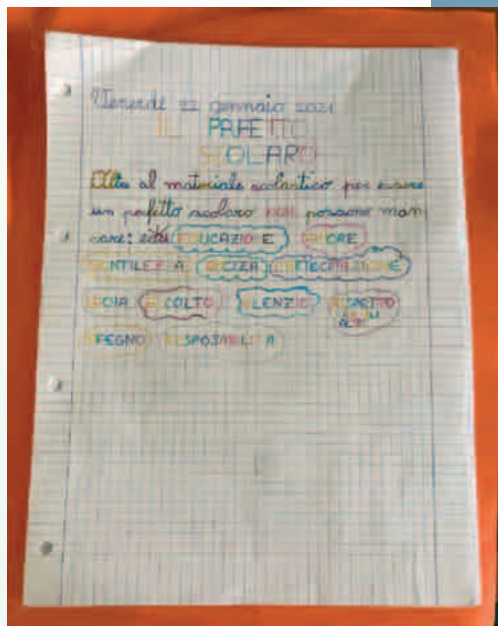 Venerdì 22 gennaio 2021
IL PAFETTO
SCOLARO
Oltre al materiale scolastico per essere
un perfetto scolaro non possono man
care: EDUCAZIONE
GENTILEZZA PARTECIPAZIONE
GIOIA ASCOLTO SILENZIO RISPETTO
ALTRI